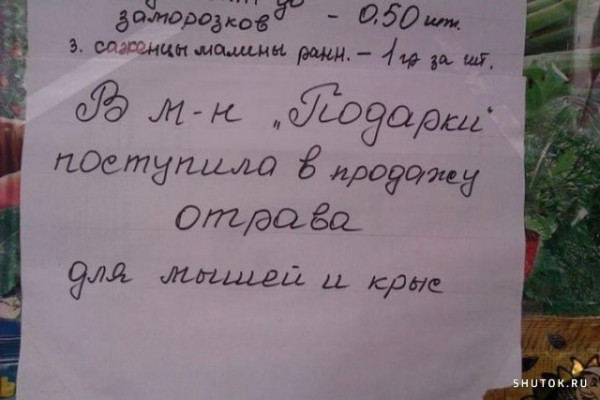 до
заморозков - 0.50 шт.
3. саженцы малины ранн. - 1 гр за шт.
В м-н „Подарки"
поступила в продажу
отрава
для мышей и крыс
SHUTOK.RU